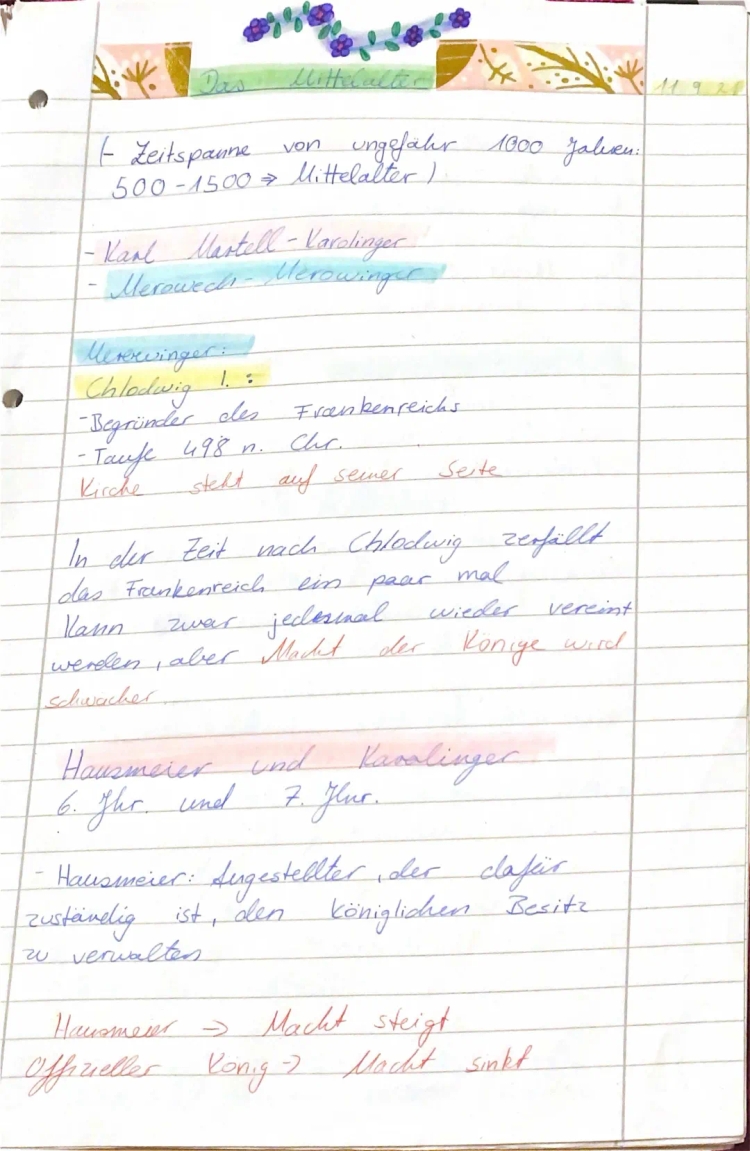 Das Mittelalter
11 9 2
(- Zeitspanne von ungefähr 1000 Jahren:
500-1500 ⇒ Mittelalter)
- Karl Martell - Karolinger
- Merowech - Merowinger
Merowinger:
Chlodwig I. :
- Begründer des Frankenreichs
- Taufe 498 n. Chr.
Kirche steht auf seiner Seite
In der Zeit nach Chlodwig zerfällt
das Frankenreich ein paar mal
Kann zwar jedesmal wieder vereint
werden, aber Macht der Könige wird
schwacher.
Hausmeier und Karolinger
6. Jhr. und 7. Jhr.
- Hausmeier: Angestellter, der dafür
zuständig ist, den königlichen Besitz
zu verwalten
Hausmeier → Macht steigt
Offizieller König → Macht sinkt